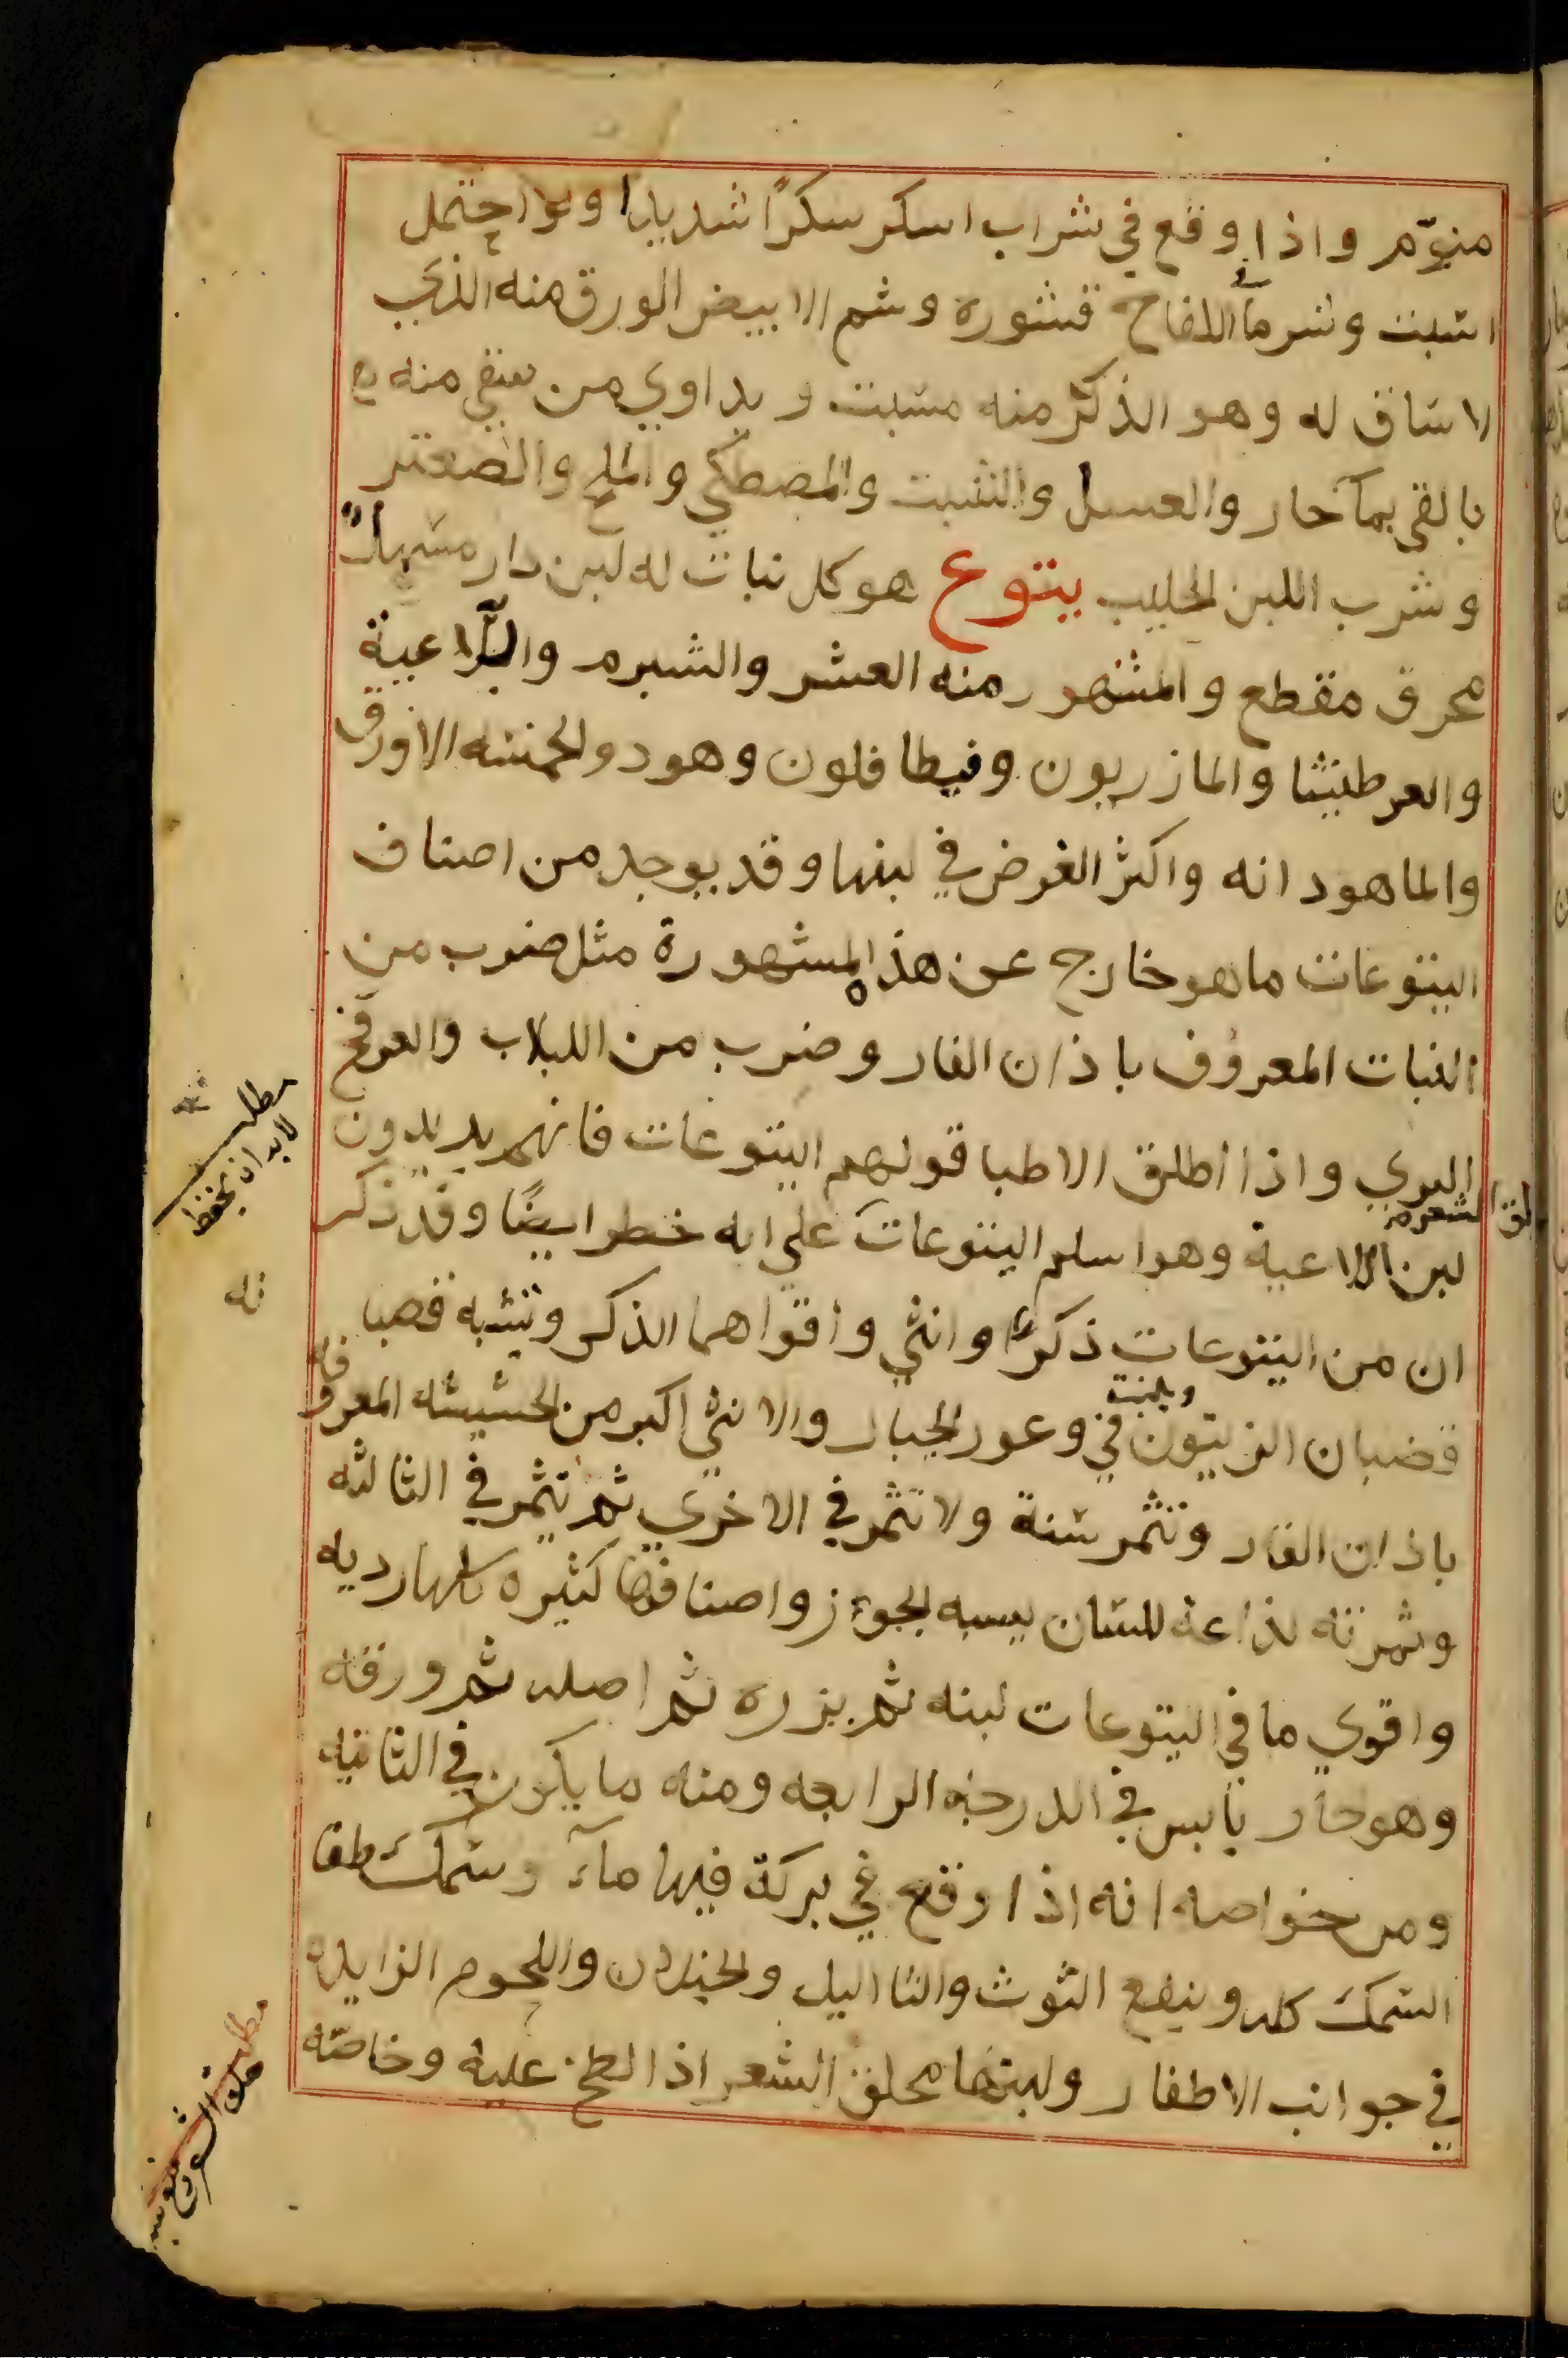 منوّم واذا وقع في شراب اسكر سكرًا شديدا ولو احتمل
اسبت وشرما اللفاح قشوره وشم الابيض الورق منه الذي
لا ساق له وهو الذكر منه مسبت ويداوي من سقي منه
بالقي بمآ حار والعسل والشبت والمصطكي والملح والصعتر
وشرب اللبن الحليب يتوع هو كل نبات له لبن دار مسهلاً
محرق مقطع والمشهور منه العشر والشبرم واللاعية
والعرطنيثا والمازريون وفيطافلون وهو ذو الخمسه الاورق
والماهودانه واكثر الغرض في لبنها وقد يوجد من اصناف
اليتوعات ما هو خارج عن هذه المشهورة مثل ضرب من
النبات المعروف باذان الفار وضرب من اللبلاب والعرفج
البري واذا اطلق الاطبا قولهم اليتوعات فانهم يريدون
لبن اللاعية وهو اسلم اليتوعات علي انه خطر ايضًا وقد ذكر
ان من اليتوعات ذكرا وانثي واقواهما الذكر وتشبه قصبا
وينبت
قضبان الزيتون في وعور الجبار والانثي اكبر من الحشيشه المعروفه
باذان الفار وتثمر سنة ولا تثمر في الاخري ثم تثمر في الثالثه
وثمرته لذاعة للسان يسبه الجوز واصنافها كثيره كلها رديه
واقوي ما في اليتوعات لبنه ثم بزره ثم اصله ثم ورقه
وهو حار يابس في الدرجه الرابعه ومنه ما يكون في الثانيه
ومن خواصه انه اذا وقع في بركة فيها مآء وسمك طفا
السمك كله وينفع التوث والثااليل والخيلان واللحوم الزايده
في جوانب الاظفار ولبنها محلق الشعر اذا لطخ عليه وخاصّه
مطلب
لابد ان يحفظ
مطلب
حلق الشعر